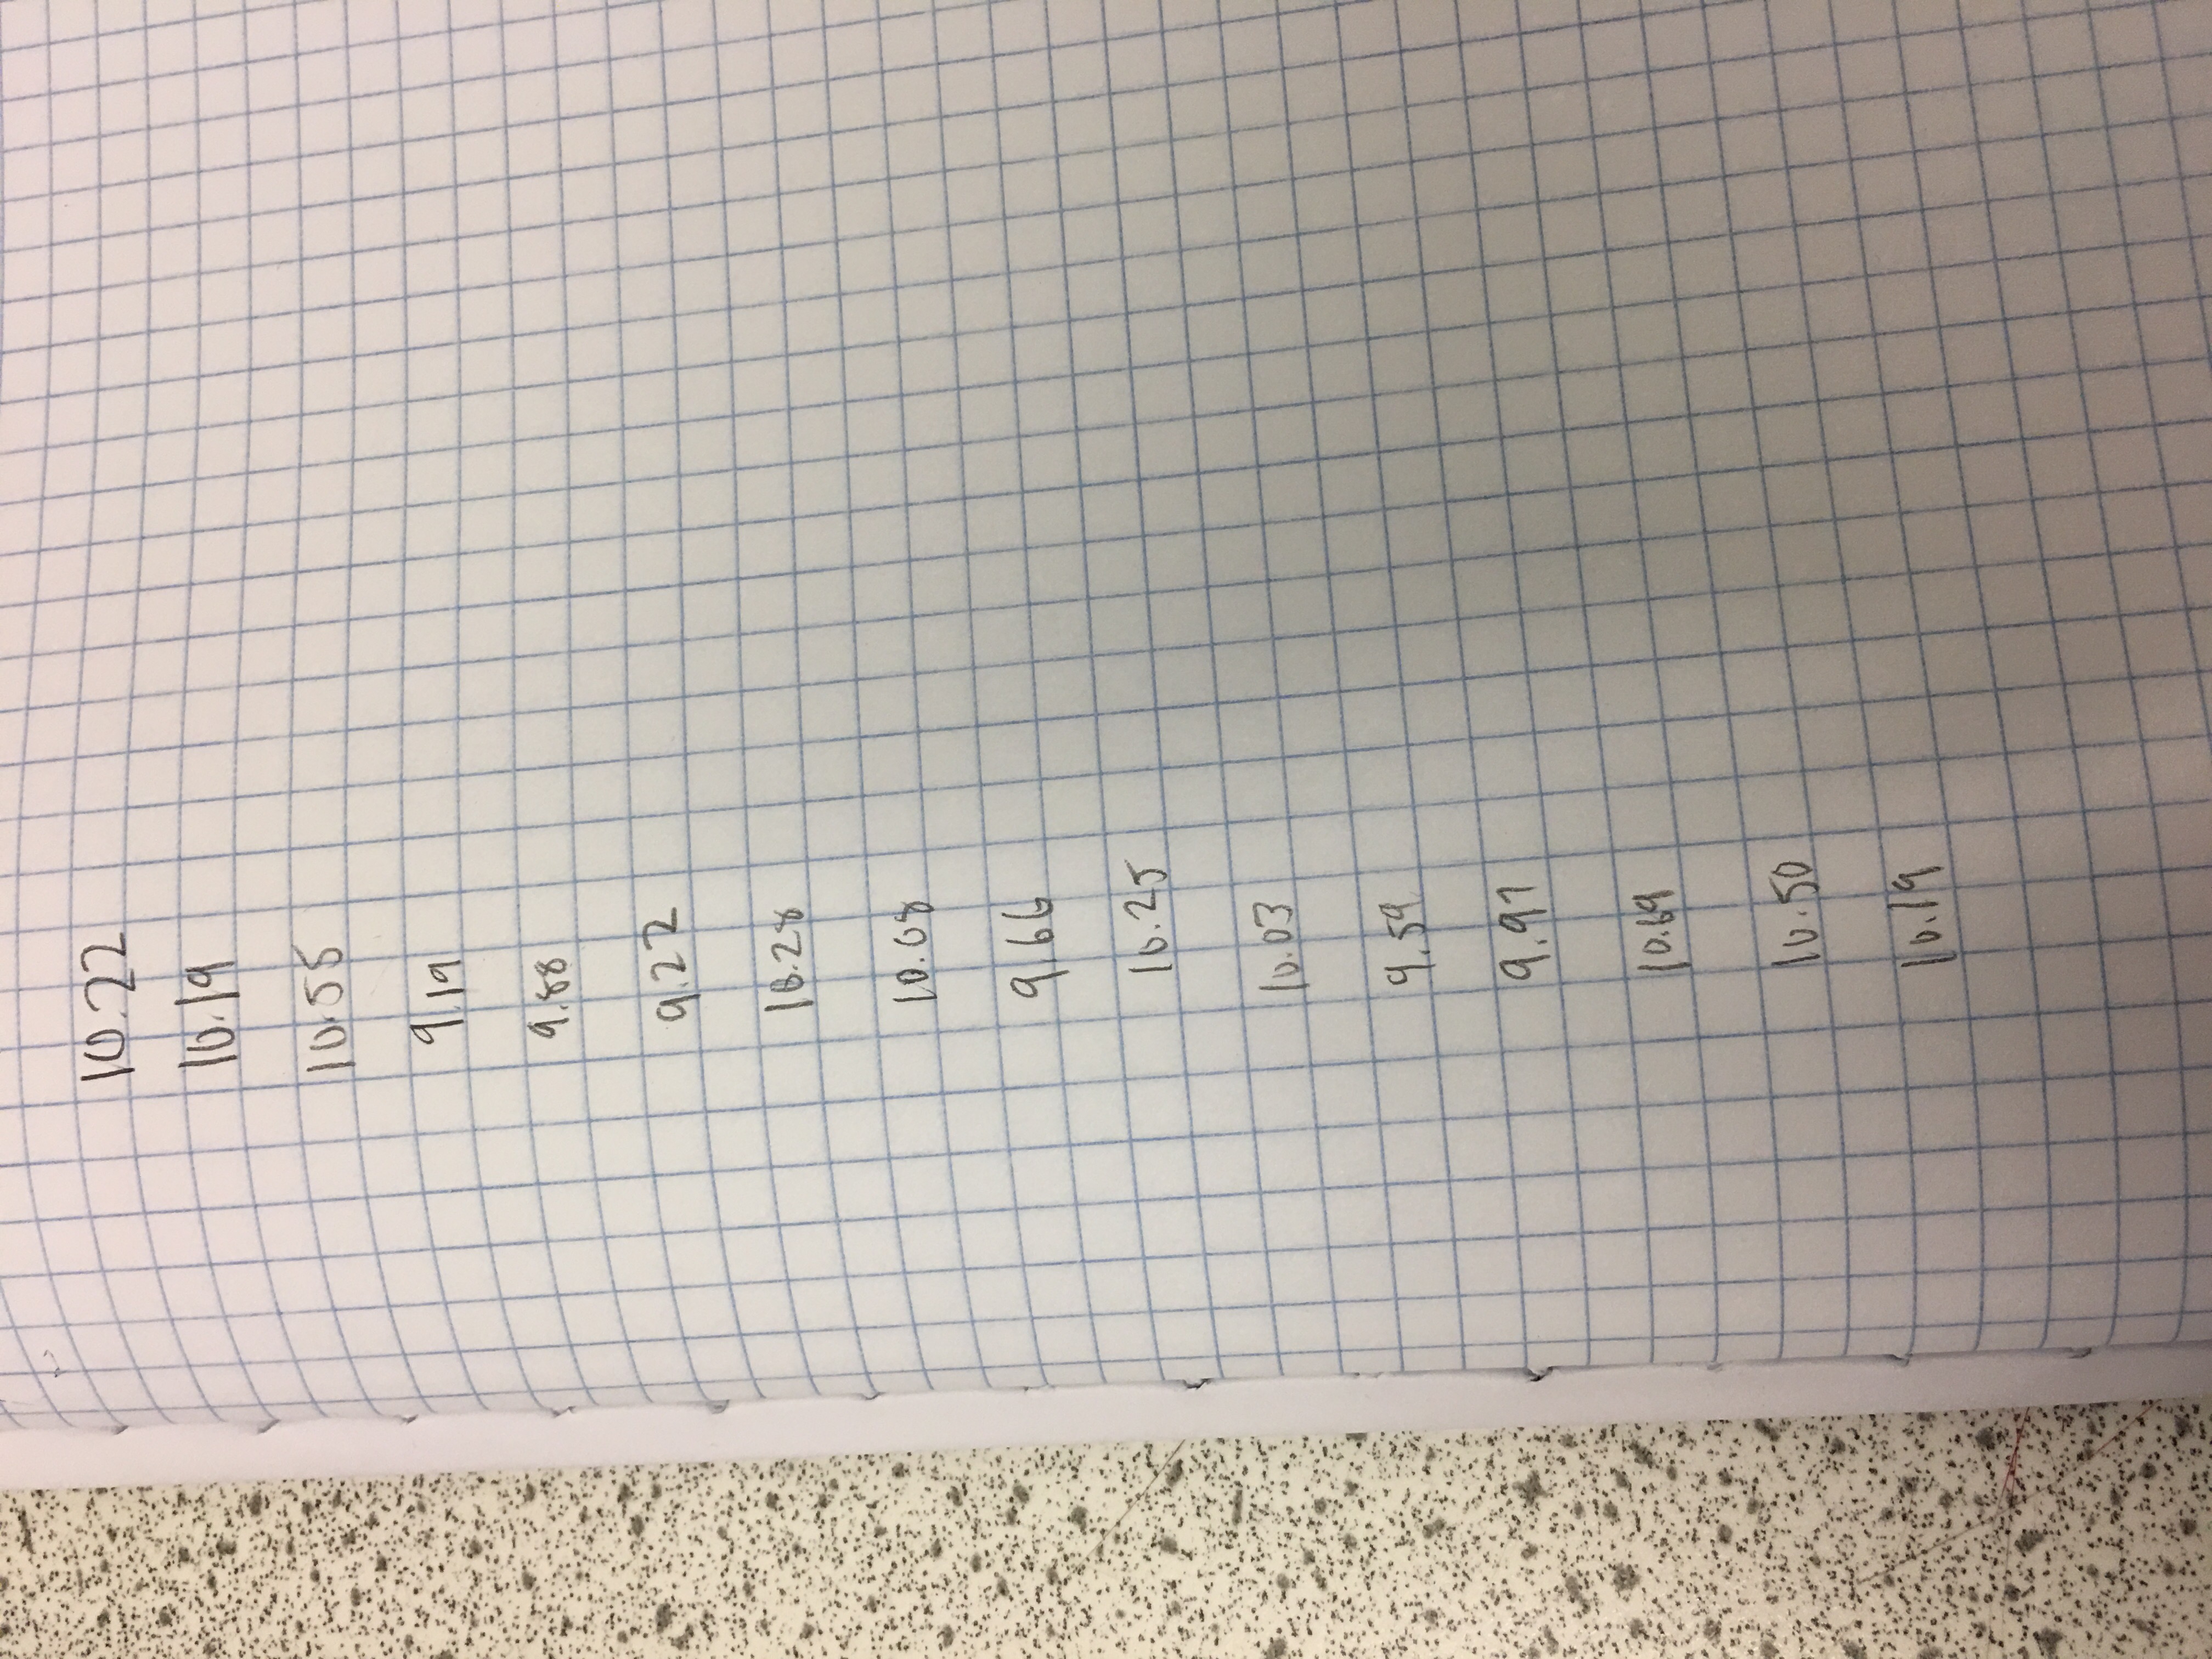 10.22
10.19
10.55
9.19
9.88
9.22
10.28
10.08
9.66
10.25
10.03
9.59
9.97
10.69
10.50
10.19